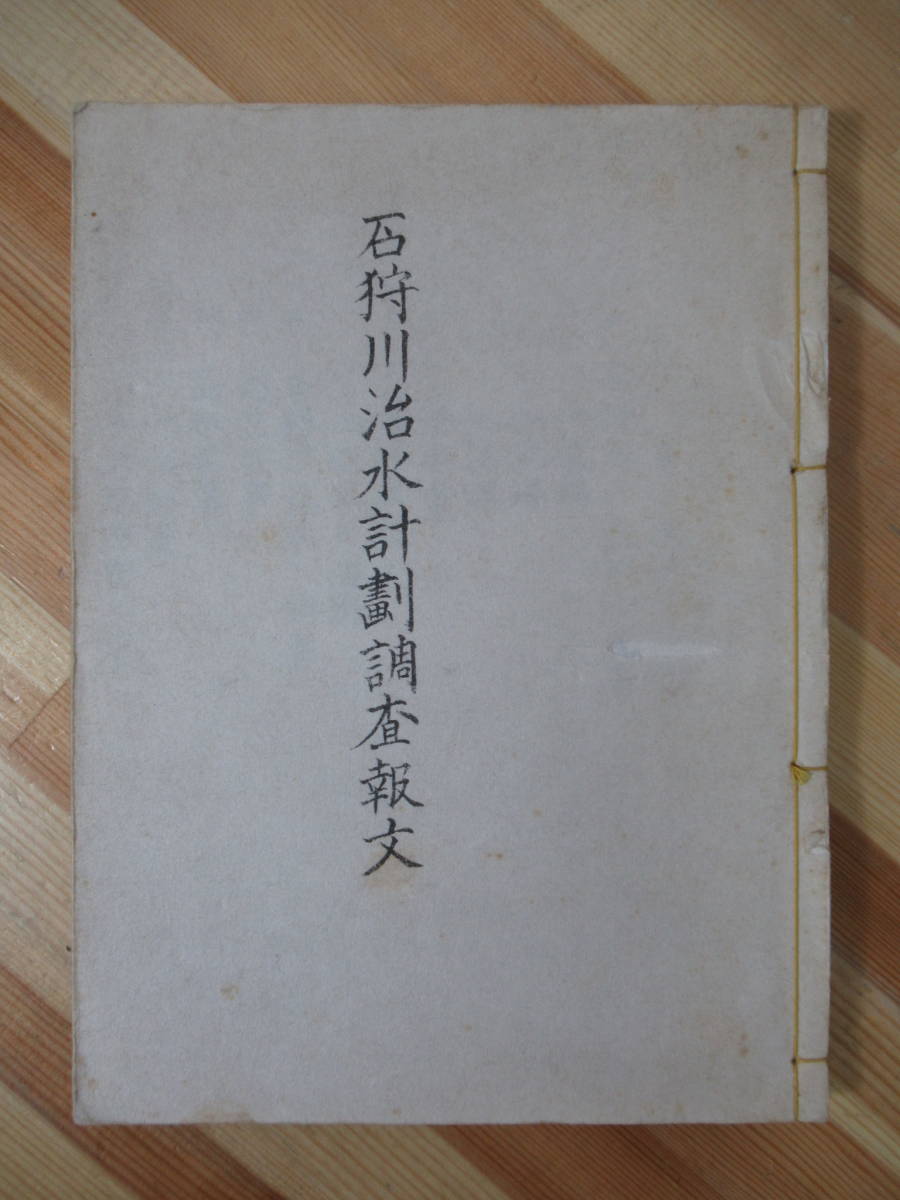 石狩川治水計劃調査報文